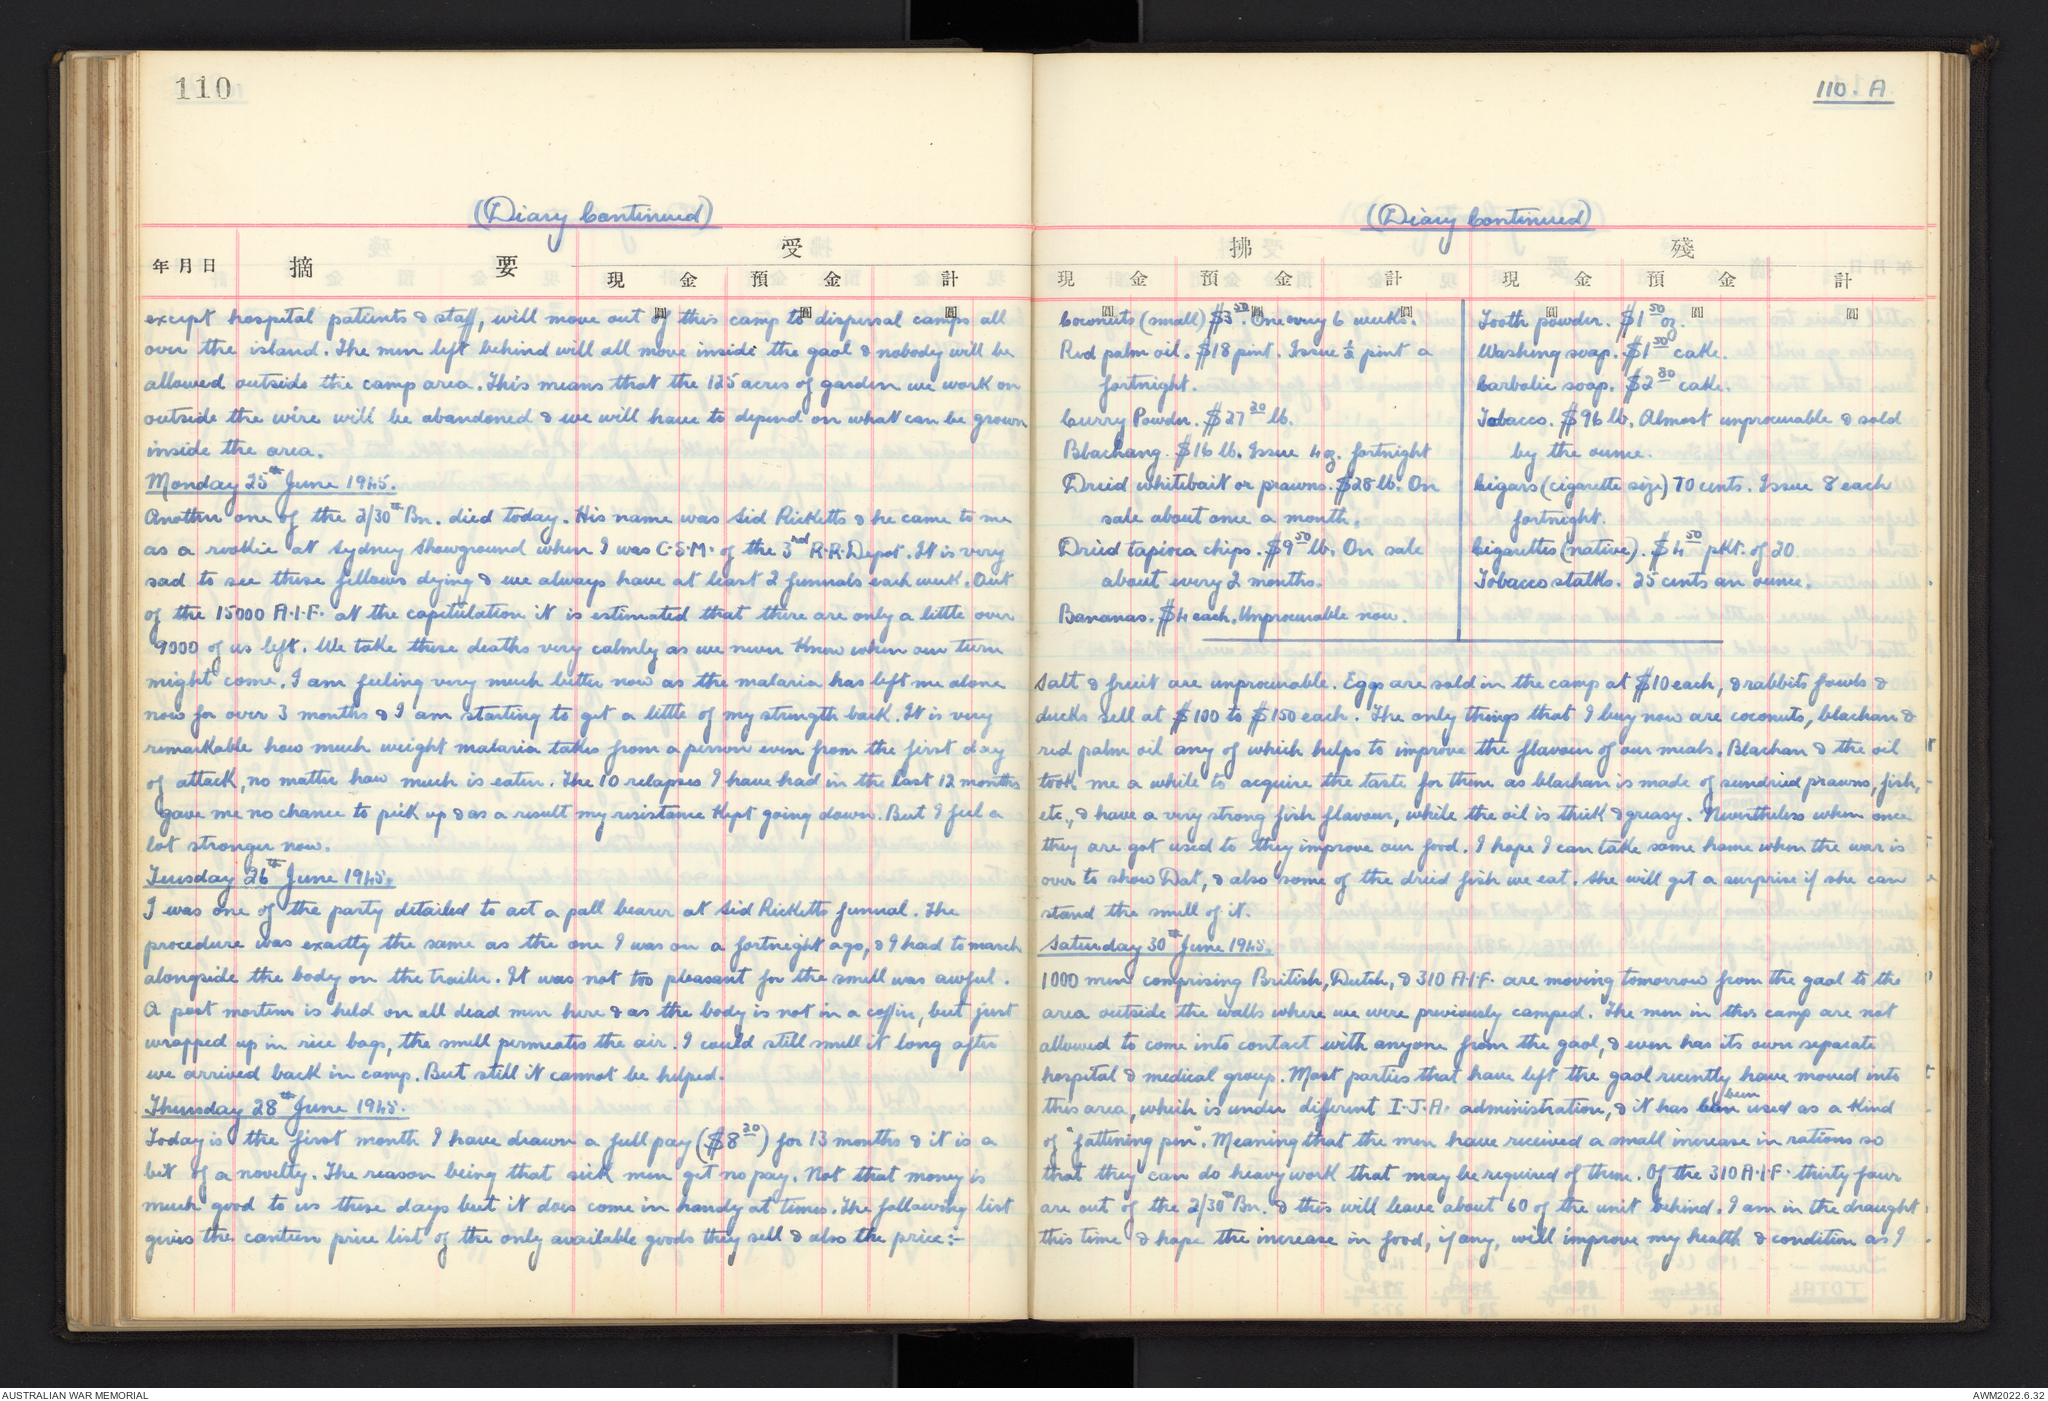 110
(Diary Continued)
年月日 摘 要 受
現 金 預 金 計
圓 圓 圓
except hospital patients & staff, will move out of this camp to dispersal camps all
over the island. The men left behind will all move inside the gaol & nobody will be
allowed outside the camp area. This means that the 125 acres of garden we work on
outside the wire will be abandoned & we will have to depend on what can be grown
inside the area.
Monday 25th June 1945.
Another one of the 2/30th Bn. died today. His name was Sid Ricketts & he came to me
as a rookie at Sydney Showground when I was C.S.M. of the 3rd R.R.Depot. It is very
sad to see these fellows dying & we always have at least 2 funerals each week. Out
of the 15000 A.I.F. at the capitulation it is estimated that there are only a little over
9000 of us left. We take these deaths very calmly as we never know when our turn
might come. I am feeling very much better now as the malaria has left me alone
now for over 3 months & I am starting to get a little of my strength back. It is very
remarkable how much weight malaria takes from a person even from the first day
of attack, no matter how much is eaten. The 10 relapses I have had in the last 12 months
gave me no chance to pick up & as a result my resistance kept going down. But I feel a
lot stronger now.
Tuesday 26th June 1945.
I was one of the party detailed to act a pall bearer at Sid Ricketts funeral. The
procedure was exactly the same as the one I was on a fortnight ago, & I had to march
alongside the body on the trailer. It was not too pleasant for the smell was awful.
A post mortem is held on all dead men here & as the body is not in a coffin, but just
wrapped up in rice bags, the smell permeates the air. I could still smell it long after
we arrived back in camp. But still it cannot be helped.
Thursday 28th June 1945.
Today is the first month I have drawn a full pay ($8 20) for 13 months & it is a
bit of a novelty. The reason being that sick men get no pay. Not that money is
much good to us these days but it does come in handy at times. The following list
gives the canteen price list of the only available goods they sell & also the price:-
110. A
(Diary Continued)
拂 殘
現 金 預 金 計 現 金 預 金 計
圓 圓 圓 圓 圓 圓
Coconuts (small) $3 50. One every 6 weeks.
Red palm oil. $18 pint. Issue ½ pint a
fortnight.
Curry Powder. $27 20 lb.
Blachang. $16 lb. Issue 4 oz. fortnight
Dried whitebait or prawns. $28 lb. On
sale about once a month.
Dried tapioca chips. $9 50 lb. On sale
about every 2 months.
Bananas. $4 each. Unprocurable now.
Tooth powder. $1 50 oz.
Washing soap. $1 50 cake.
Carbolic soap. $2 80 cake.
Tobacco. $96 lb. Almost unprocurable & sold
by the ounce.
Cigars (cigarette size) 70 cents. Issue 8 each
fortnight.
Cigarettes (native). $4 50 pkt. of 20.
Tobacco stalks. 25 cents an ounce.
Salt & fruit are unprocurable. Eggs are sold in the camp at $10 each, & rabbits fowls &
ducks sell at $100 to $150 each. The only things that I buy now are coconuts, blachan &
red palm oil any of which helps to improve the flavour of our meals. Blachan & the oil
took me a while to acquire the taste for them as blachan is made of sundried prawns, fish,
etc., & have a very strong fish flavour, while the oil is thick & greasy. Nevertheless when once
they are got used to they improve our food. I hope I can take some home when the war is
over to show Dat, & also some of the dried fish we eat. She will get a surprise if she can
stand the smell of it.
Saturday 30th June 1945.
1000 men comprising British, Dutch, & 310 A.I.F. are moving tomorrow from the gaol to the
area outside the walls where we were previously camped. The men in this camp are not
allowed to come into contact with anyone from the gaol, & even has its own separate
hospital & medical group. Most parties that have left the gaol recently have moved into
this area, which is under different I.J.A. administration, & it has been used as a kind
of "fattening pen". Meaning that the men have received a small increase in rations so
that they can do heavy work that may be required of them. Of the 310 A.I.F. thirty four
are out of the 2/30th Bn. & this will leave about 60 of the unit behind. I am in the draught
this time & hope the increase in food, if any, will improve my health & condition as I
AUSTRALIAN WAR MEMORIAL
AWM2022.6.32